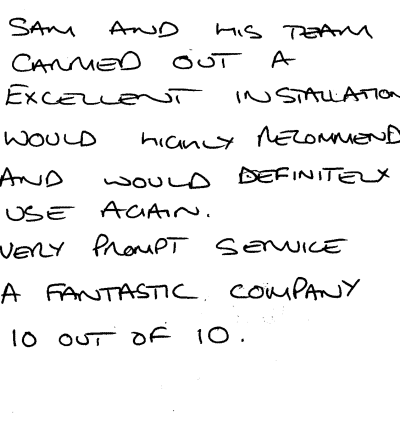 SAM AND HIS TEAM
CARRIED OUT A
EXCELLENT INSTALLATION
WOULD HIGHLY RECOMMEND
AND WOULD DEFINITELY
USE AGAIN.
VERY PROMPT SERVICE
A FANTASTIC COMPANY
10 OUT OF 10.